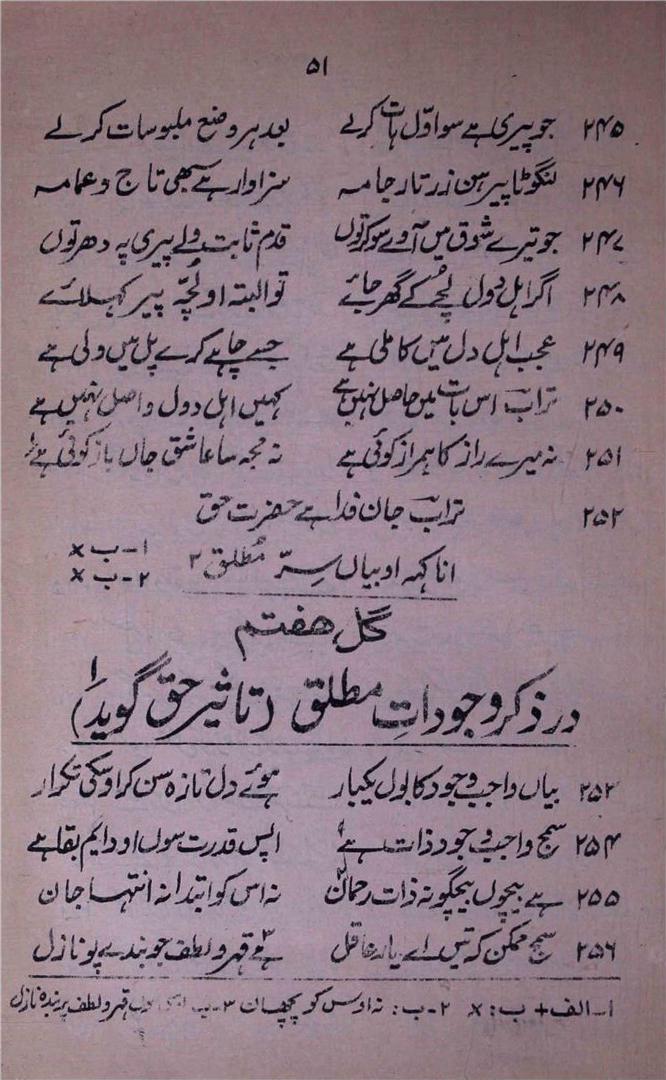 ۵۱
۲۴۵ جو پیری ہے سو اوّل ہات کرلے بعد ہر وضع ملبوسات کرلے
۲۴۶ لنگوٹا پیرہن زرتار جامہ سزاوار ہے سبھی تاج و عمامہ
۲۴۷ جو تیرے شوق میں آوے سو کر توں قدم ثابت ولے پیری پہ دھر توں
۲۴۸ اگر اہل دول لچے کے گھر جائے تو البتہ او لُچّہ پیر کہلائے
۲۴۹ عجب اہل دل میں کاملی ہے جسے چاہے کرے پل میں ولی ہے
۲۵۰ تراب اس بات میں حاصل نہیں ہے کہیں اہل دول واصل نہیں ہے
۲۵۱ نہ میرے راز کا ہمراز کوئی ہے نہ مجہ سا عاشق جاں باز کوئی ہے ۱
۲۵۲ تراب جان فدا ہے حضرت حق
انا کہہ او بیاں سِرّ مُطلق ۲
۱ - ب x
۲ - ب x
گل ہفتم
در ذکر وجود اتِ مطلق (تاثیر حق گوید) ۱
۲۵۳ بیاں واجب وجود کا بول یکبار ہوئے دل تازہ سن کر اوسکی تکرار
۲۵۴ سمج واجب وجود ذات ہے اپس قدرت سوں او دایم بقا ہے
۲۵۵ ہے بیچوں بیچگونہ ذات رحمان ۲ نہ اس کو ابتدا نہ انتہا جان
۲۵۶ سمج ممکن کہ تیں اے یار عاقل ہے قہر و لطف جو بندے پو نازل
۱ - الف + ب : x ۲ - ب : نہ اوس کو پچھان ۳ - ب قہر و لطف بر بندہ نازل